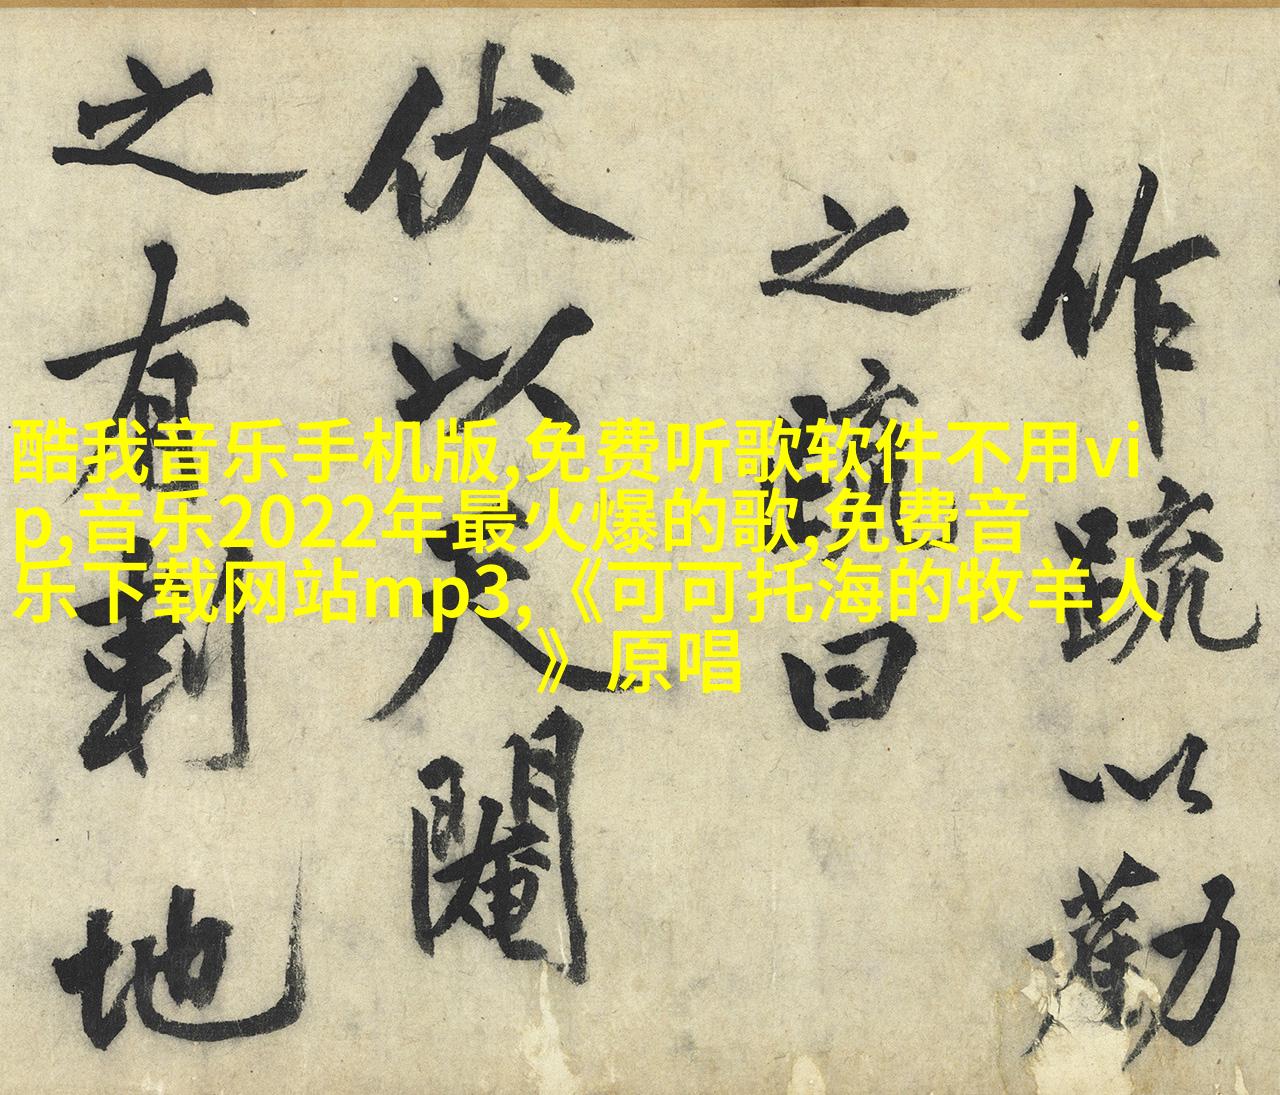 作疏以勸
之疏曰
伏以天閹
之有刺地
酷我音乐手机版,免费听歌软件不用vi
p,音乐2022年最火爆的歌,免费音
乐下载网站mp3,《可可托海的牧羊人
》原唱